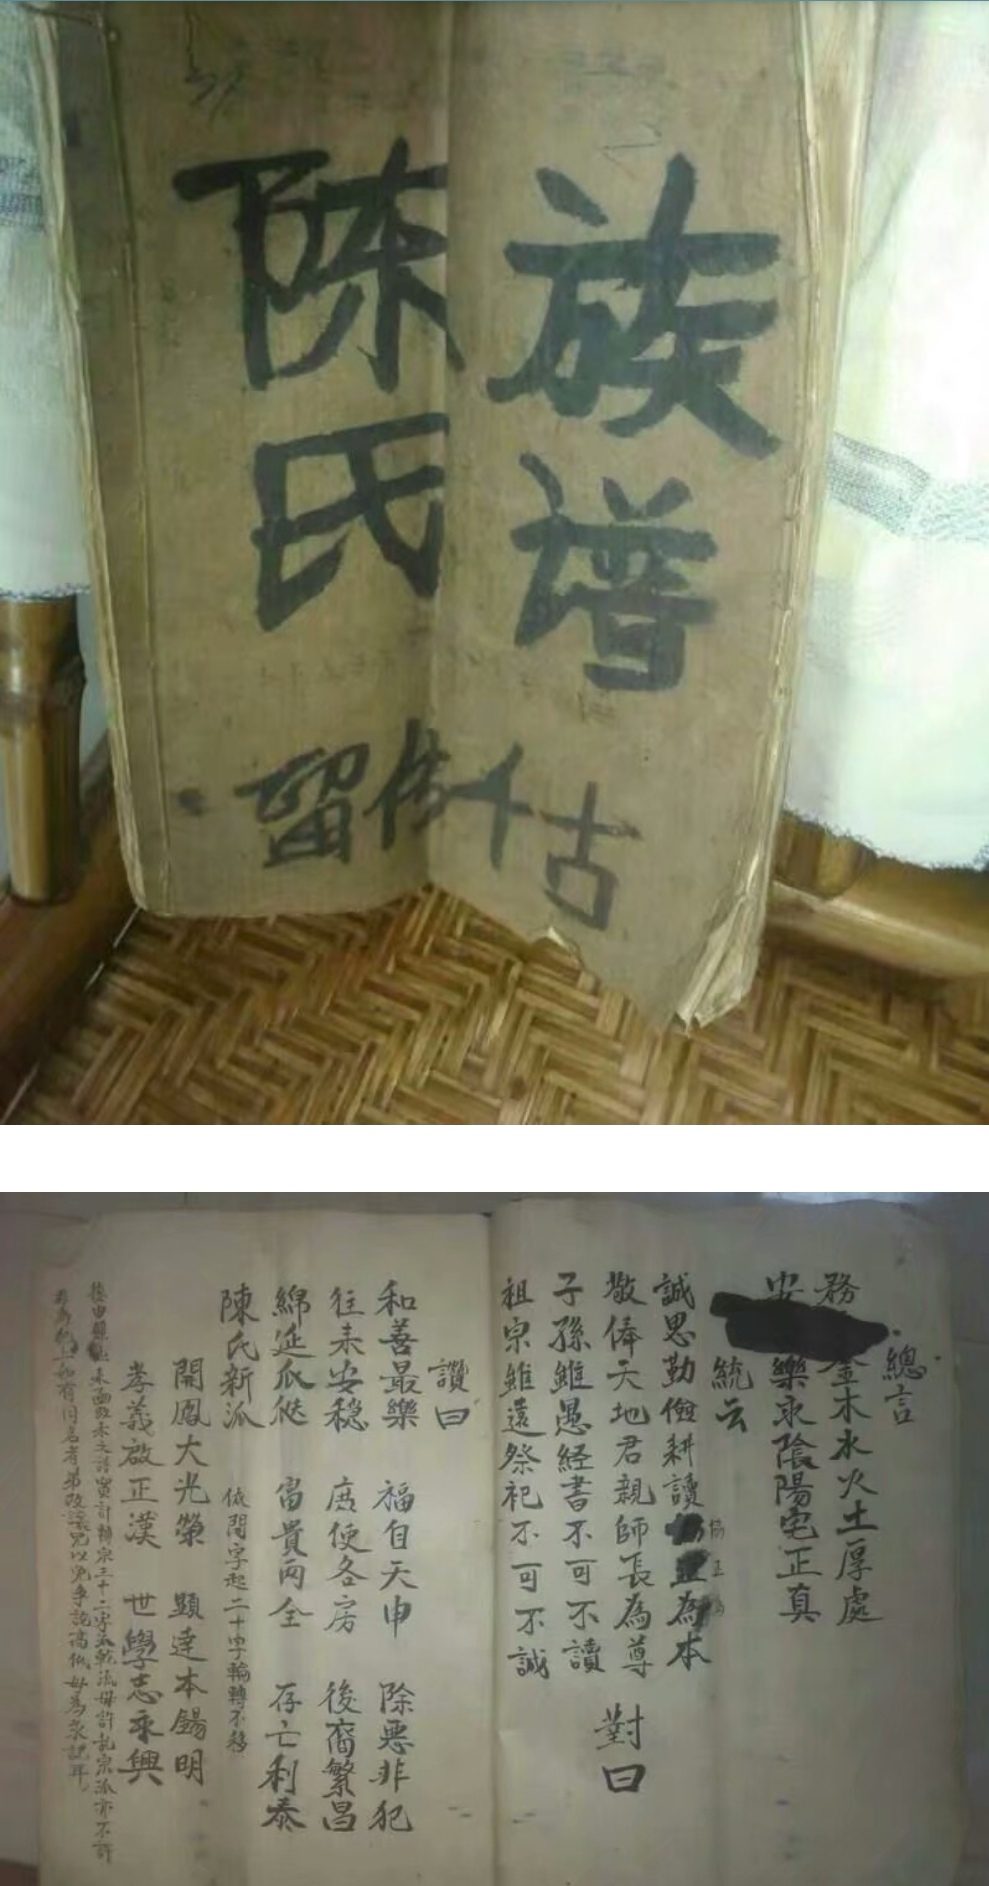 陈氏
族谱
留传千古
總言
務 金木水火土厚處
安 樂永陰陽宅正真
統云
誠思勤儉耕讀 為本
協正為
敬俸天地君親師長為尊
子孫雖愚経書不可不讀
祖宗雖遠祭祀不可不誠
對曰
讚曰
和善最樂 福自天申 除惡非犯
往来安穏 居便各房 後裔繁昌
綿延瓜瓞 富貴両全 存亡利泰
陳氏新派 依開字起二十字輪轉不移
開鳳大光榮 顯達本錫明
孝義啟正漢 世學志永興